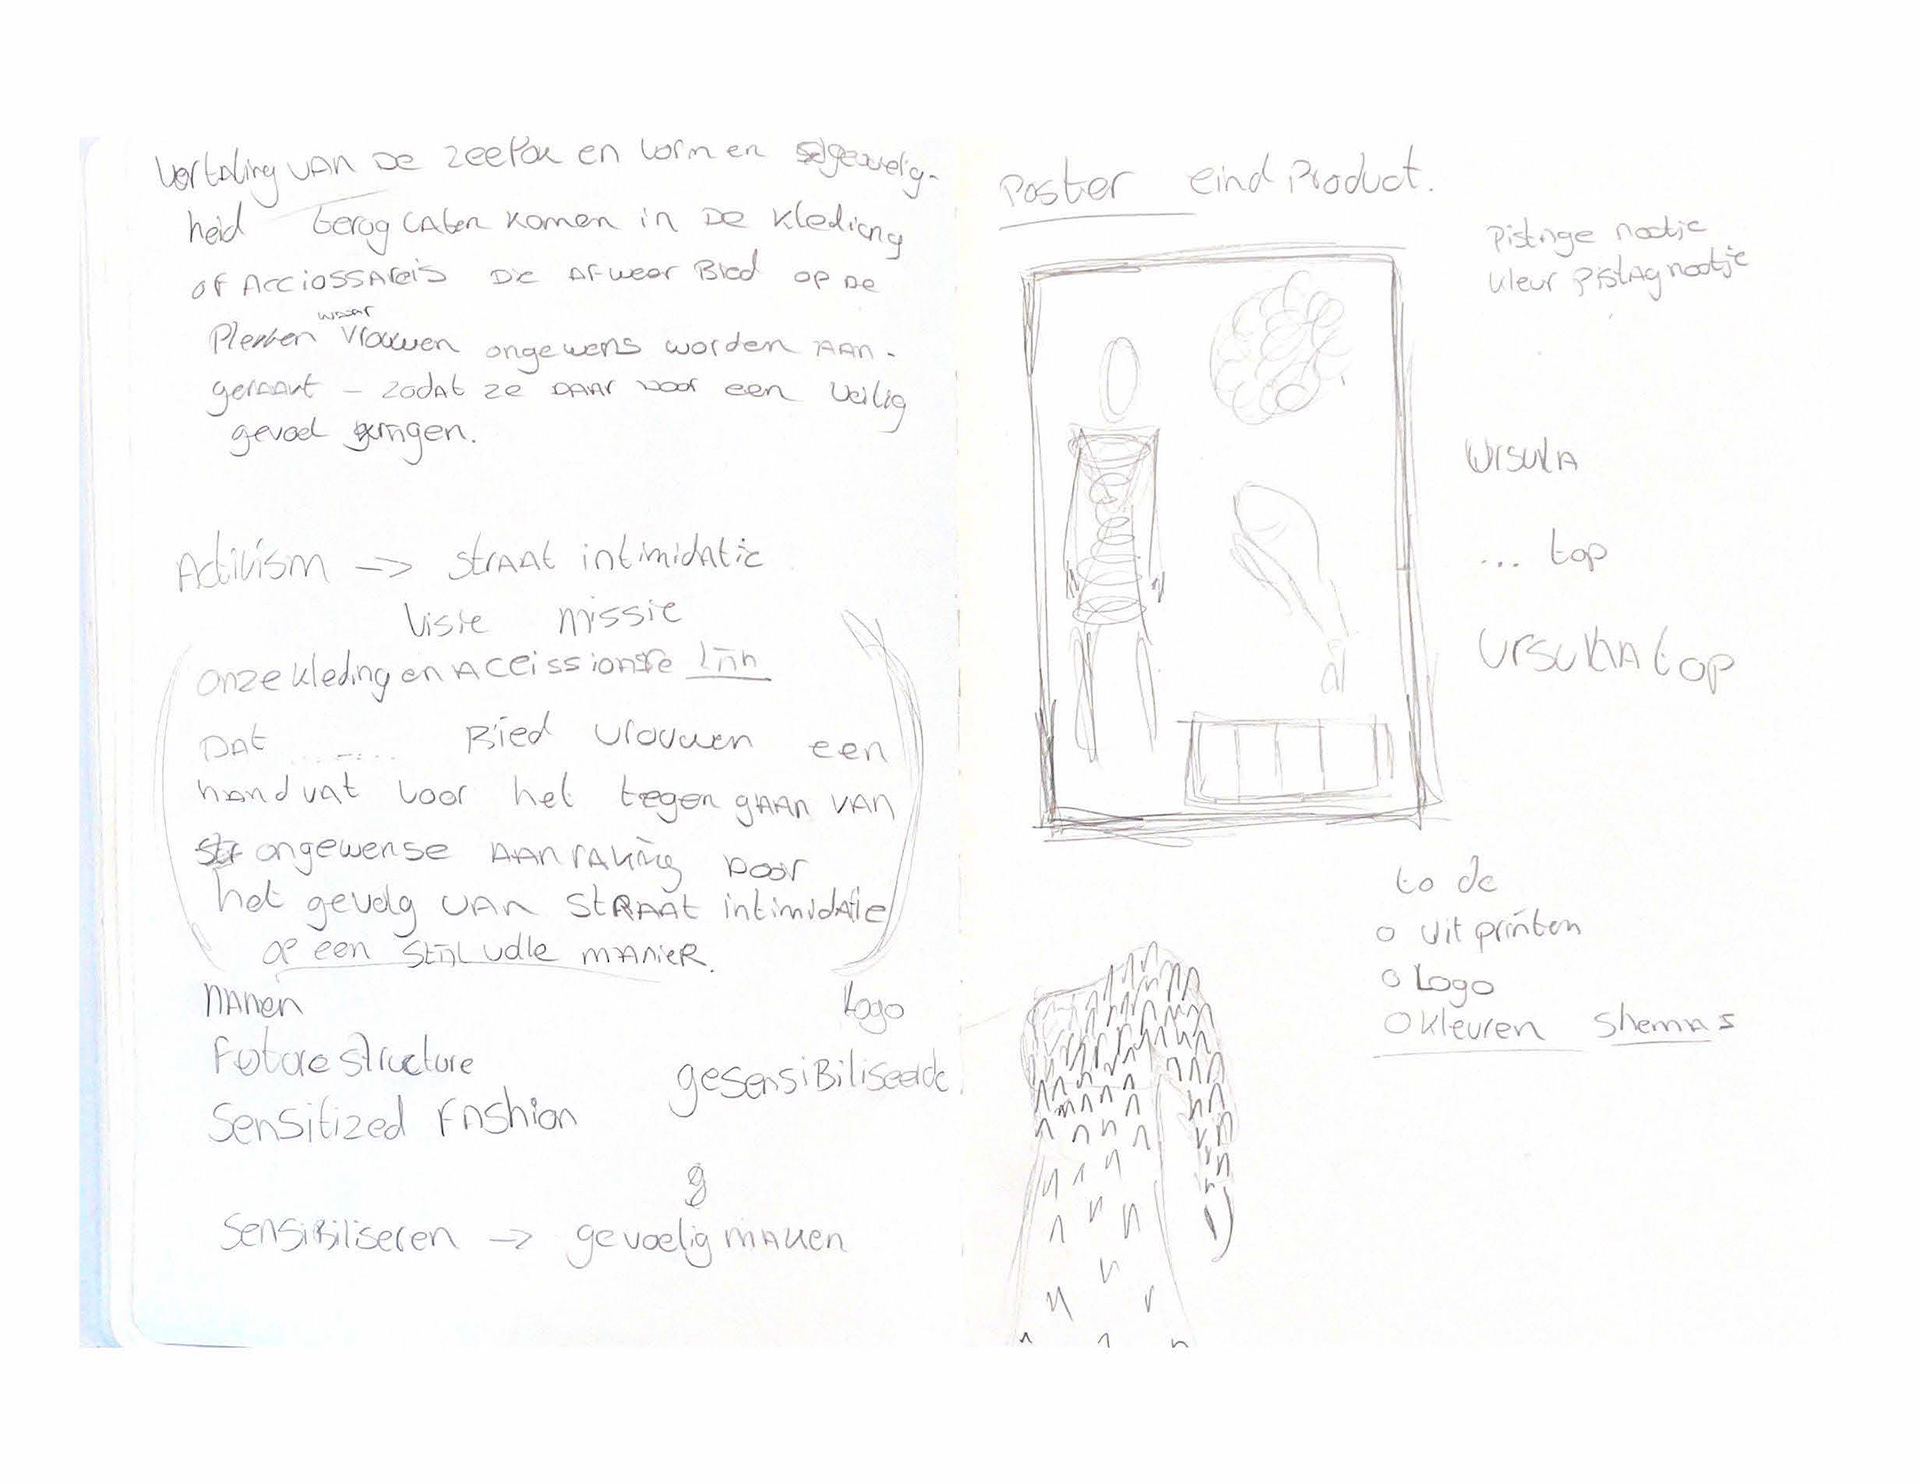 Vertaling van de zeepok en vormen gevoelig-
heid terug laten komen in de klediang
of Acciossareis die Afweer Bied op de
waar
Plekken vrouwen ongewens worden AAN-
geraakt – zodat ze daar voor een veilig
gevoel kringen.
Activism -> straat intimidatie
Visie missie
onze kleding en Acceissionsre lijn
DAt ........ Bied vrouwen een
handvat voor het tegen gaan van
ongewense AANraking Door
het gevolg van Straat intimidatie
op een stijl volle manier.
namen
Logo
Future structure
gesensiBiliseerde
Sensitized Fashion
g
SensiBiliseren -> gevoelig maken
Poster eind Product.
Pistage nootje
kleur pistagnootje
Ursula
... top
to de
o uit printen
o Logo
o kleuren shemas